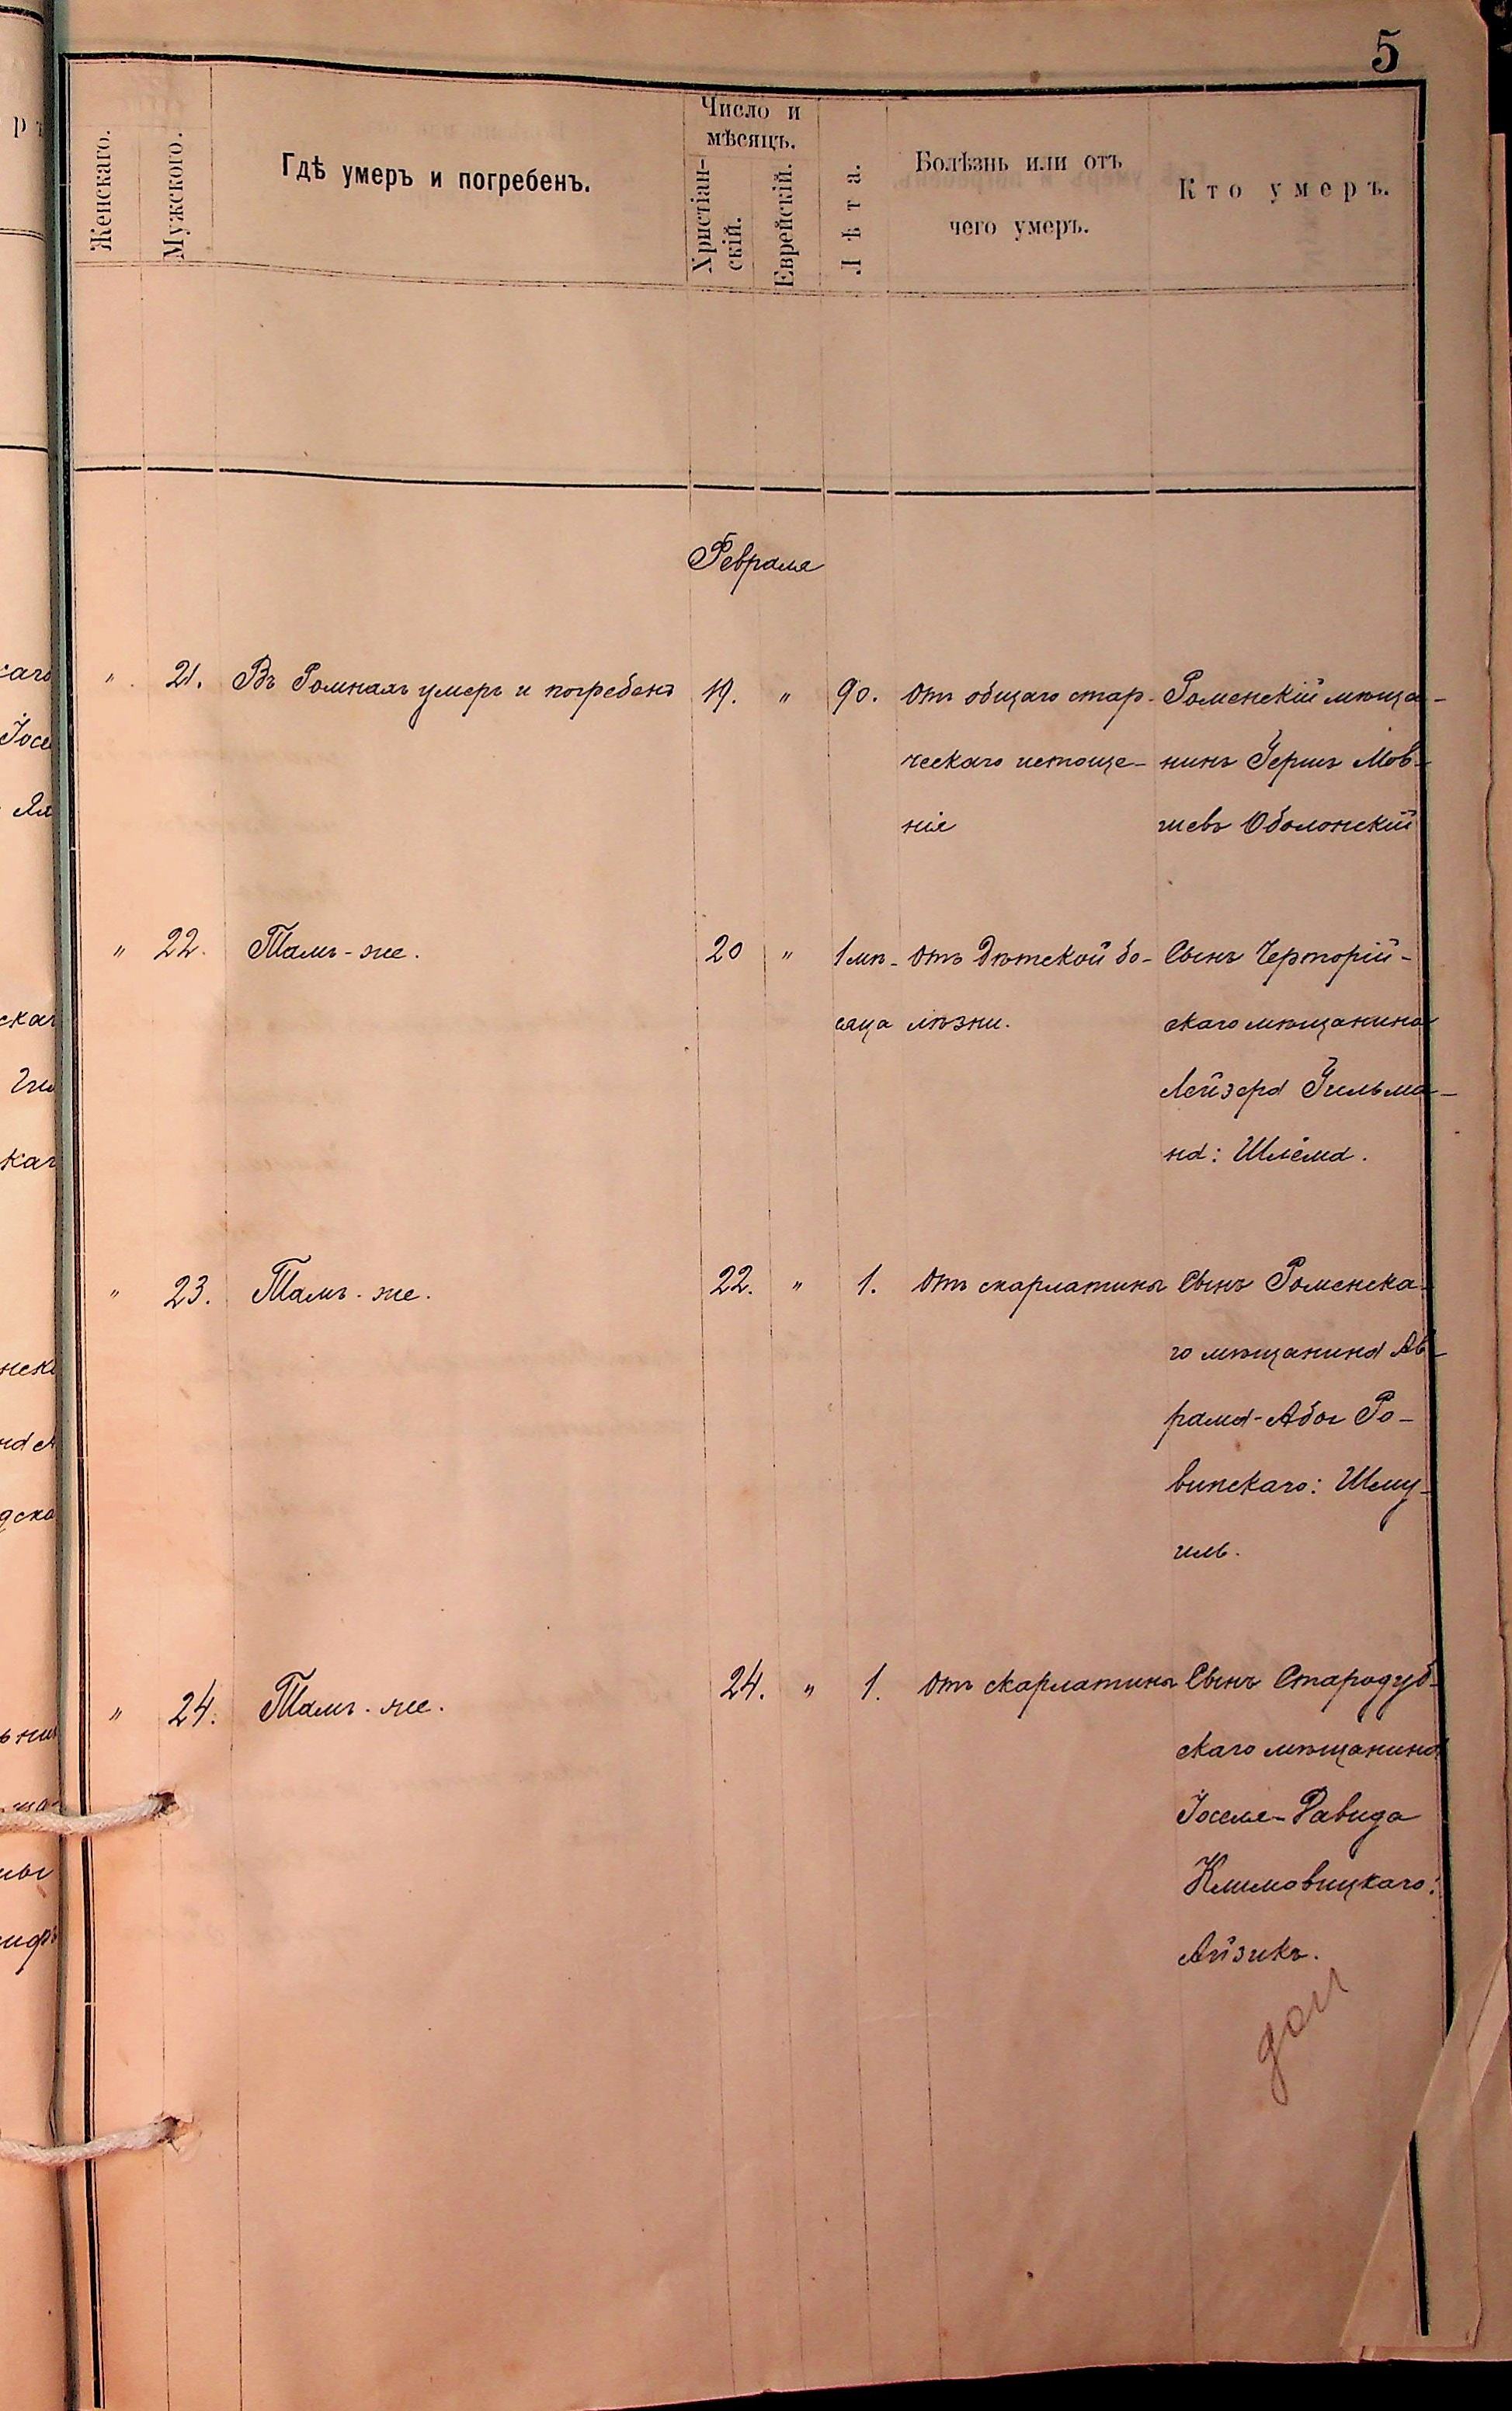 5
Женскаго.
Мужского.
Гдѣ умеръ и погребенъ.
Число и
мѣсяцъ.
Христіан-
скій.
Еврейскій.
Лѣта.
Болѣзнь или отъ
чего умеръ.
Кто умеръ.
Февраля
" 21. Въ Ромнахъ умеръ и погребенъ 19. " 90. Отъ общаго стар- Роменскій мѣща-
ческаго истоще- нинъ Гершъ Мов-
нія шевъ Оболонскій
" 22. Тамъ-же. 20 " 1 мѣ- Отъ дѣтской бо- Сынъ Черторій-
сяца лѣзни. скаго мѣщанина
Лейзера Гильма-
на: Шлёма.
" 23. Тамъ-же. 22. " 1. Отъ скарлатины Сынъ Роменска-
го мѣщанина Ав-
рама-Абы Ро-
винскаго: Шму-
иль.
" 24. Тамъ-же. 24. " 1. Отъ скарлатины Сынъ Стародуб-
скаго мѣщанина
Іоселя-Давида
Климовицкаго:
Айзикъ.